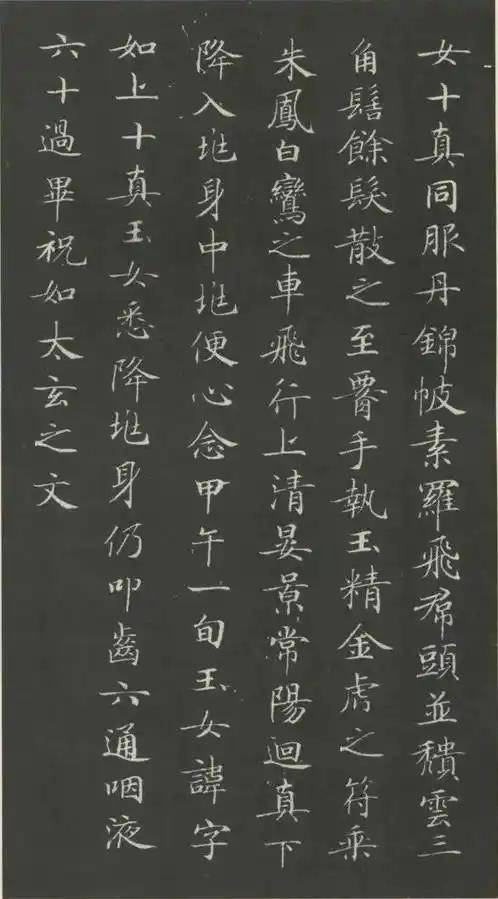 女十真同服丹錦帔素羅飛帬頭並穨雲三
角髻餘髮散之至腰手執玉精金虎之符乘
朱鳳白鸞之車飛行上清晏景常陽迴真下
降入兆身中兆便心念甲午一旬玉女諱字
如上十真玉女悉降兆身仍叩齒六通咽液
六十過畢祝如太玄之文